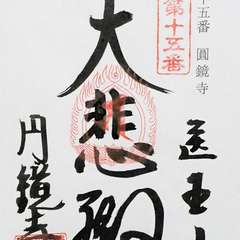 十五番 圓鏡寺
第十五番
送王
大悲
円鏡寺